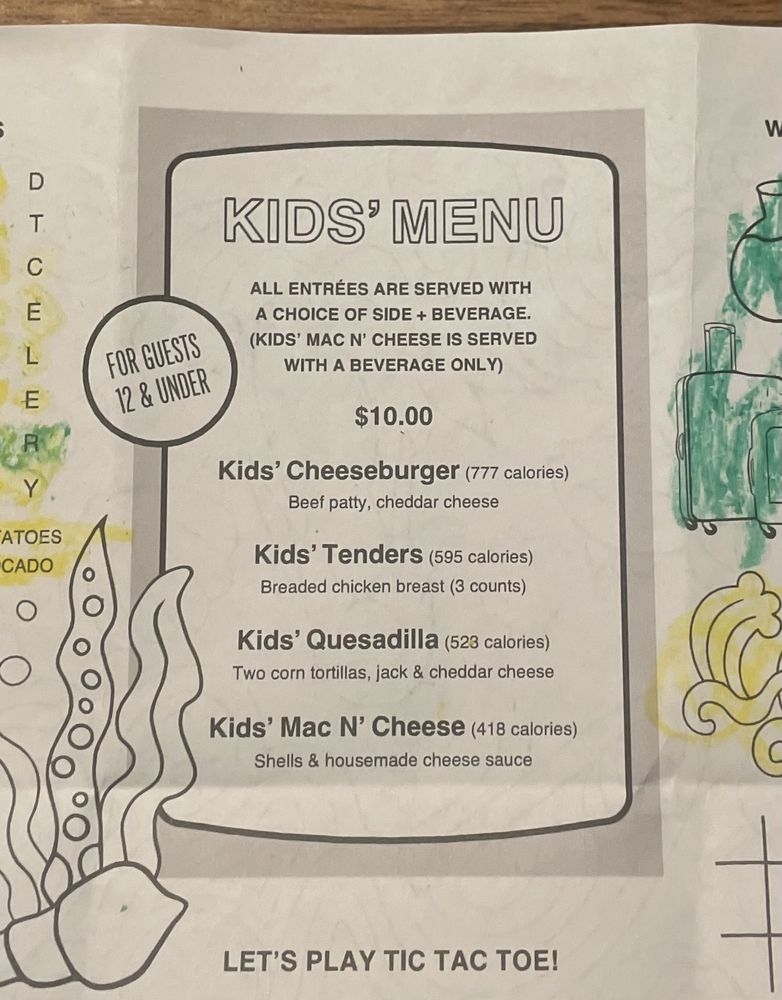 S
D
T
C
E
L
E
R
Y
ATOES
CADO
KIDS’ MENU
ALL ENTRÉES ARE SERVED WITH
A CHOICE OF SIDE + BEVERAGE.
(KIDS’ MAC N’ CHEESE IS SERVED
WITH A BEVERAGE ONLY)
FOR GUESTS
12 & UNDER
$10.00
Kids’ Cheeseburger (777 calories)
Beef patty, cheddar cheese
Kids’ Tenders (595 calories)
Breaded chicken breast (3 counts)
Kids’ Quesadilla (523 calories)
Two corn tortillas, jack & cheddar cheese
Kids’ Mac N’ Cheese (418 calories)
Shells & housemade cheese sauce
LET’S PLAY TIC TAC TOE!
W